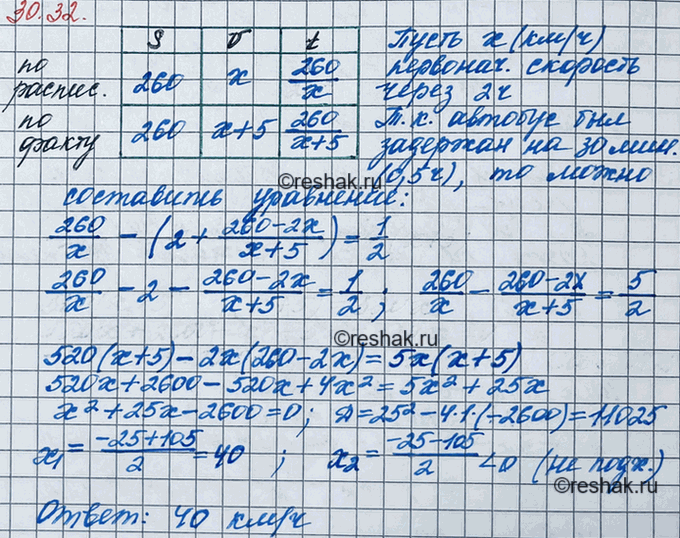 30.32.
S v t
по распис. 260 x 260/x
по факту 260 x+5 260/(x+5)
Пусть x (км/ч)
первонач. скорость
через 2ч
Т.к. автобус был
задержан на 30 мин.
(0,5ч), то можно
©reshak.ru
составить уравнение:
260/x - (2 + (260-2x)/(x+5)) = 1/2
260/x - 2 - (260-2x)/(x+5) = 1/2 ; 260/x - (260-2x)/(x+5) = 5/2
©reshak.ru
520(x+5) - 2x(260-2x) = 5x(x+5)
520x + 2600 - 520x + 4x² = 5x² + 25x
x² + 25x - 2600 = 0 ; Д = 25² - 4·1·(-2600) = 11025
x₁ = (-25+105)/2 = 40 ; x₂ = (-25-105)/2 <0 (не подх.)
©reshak.ru
Ответ: 40 км/ч